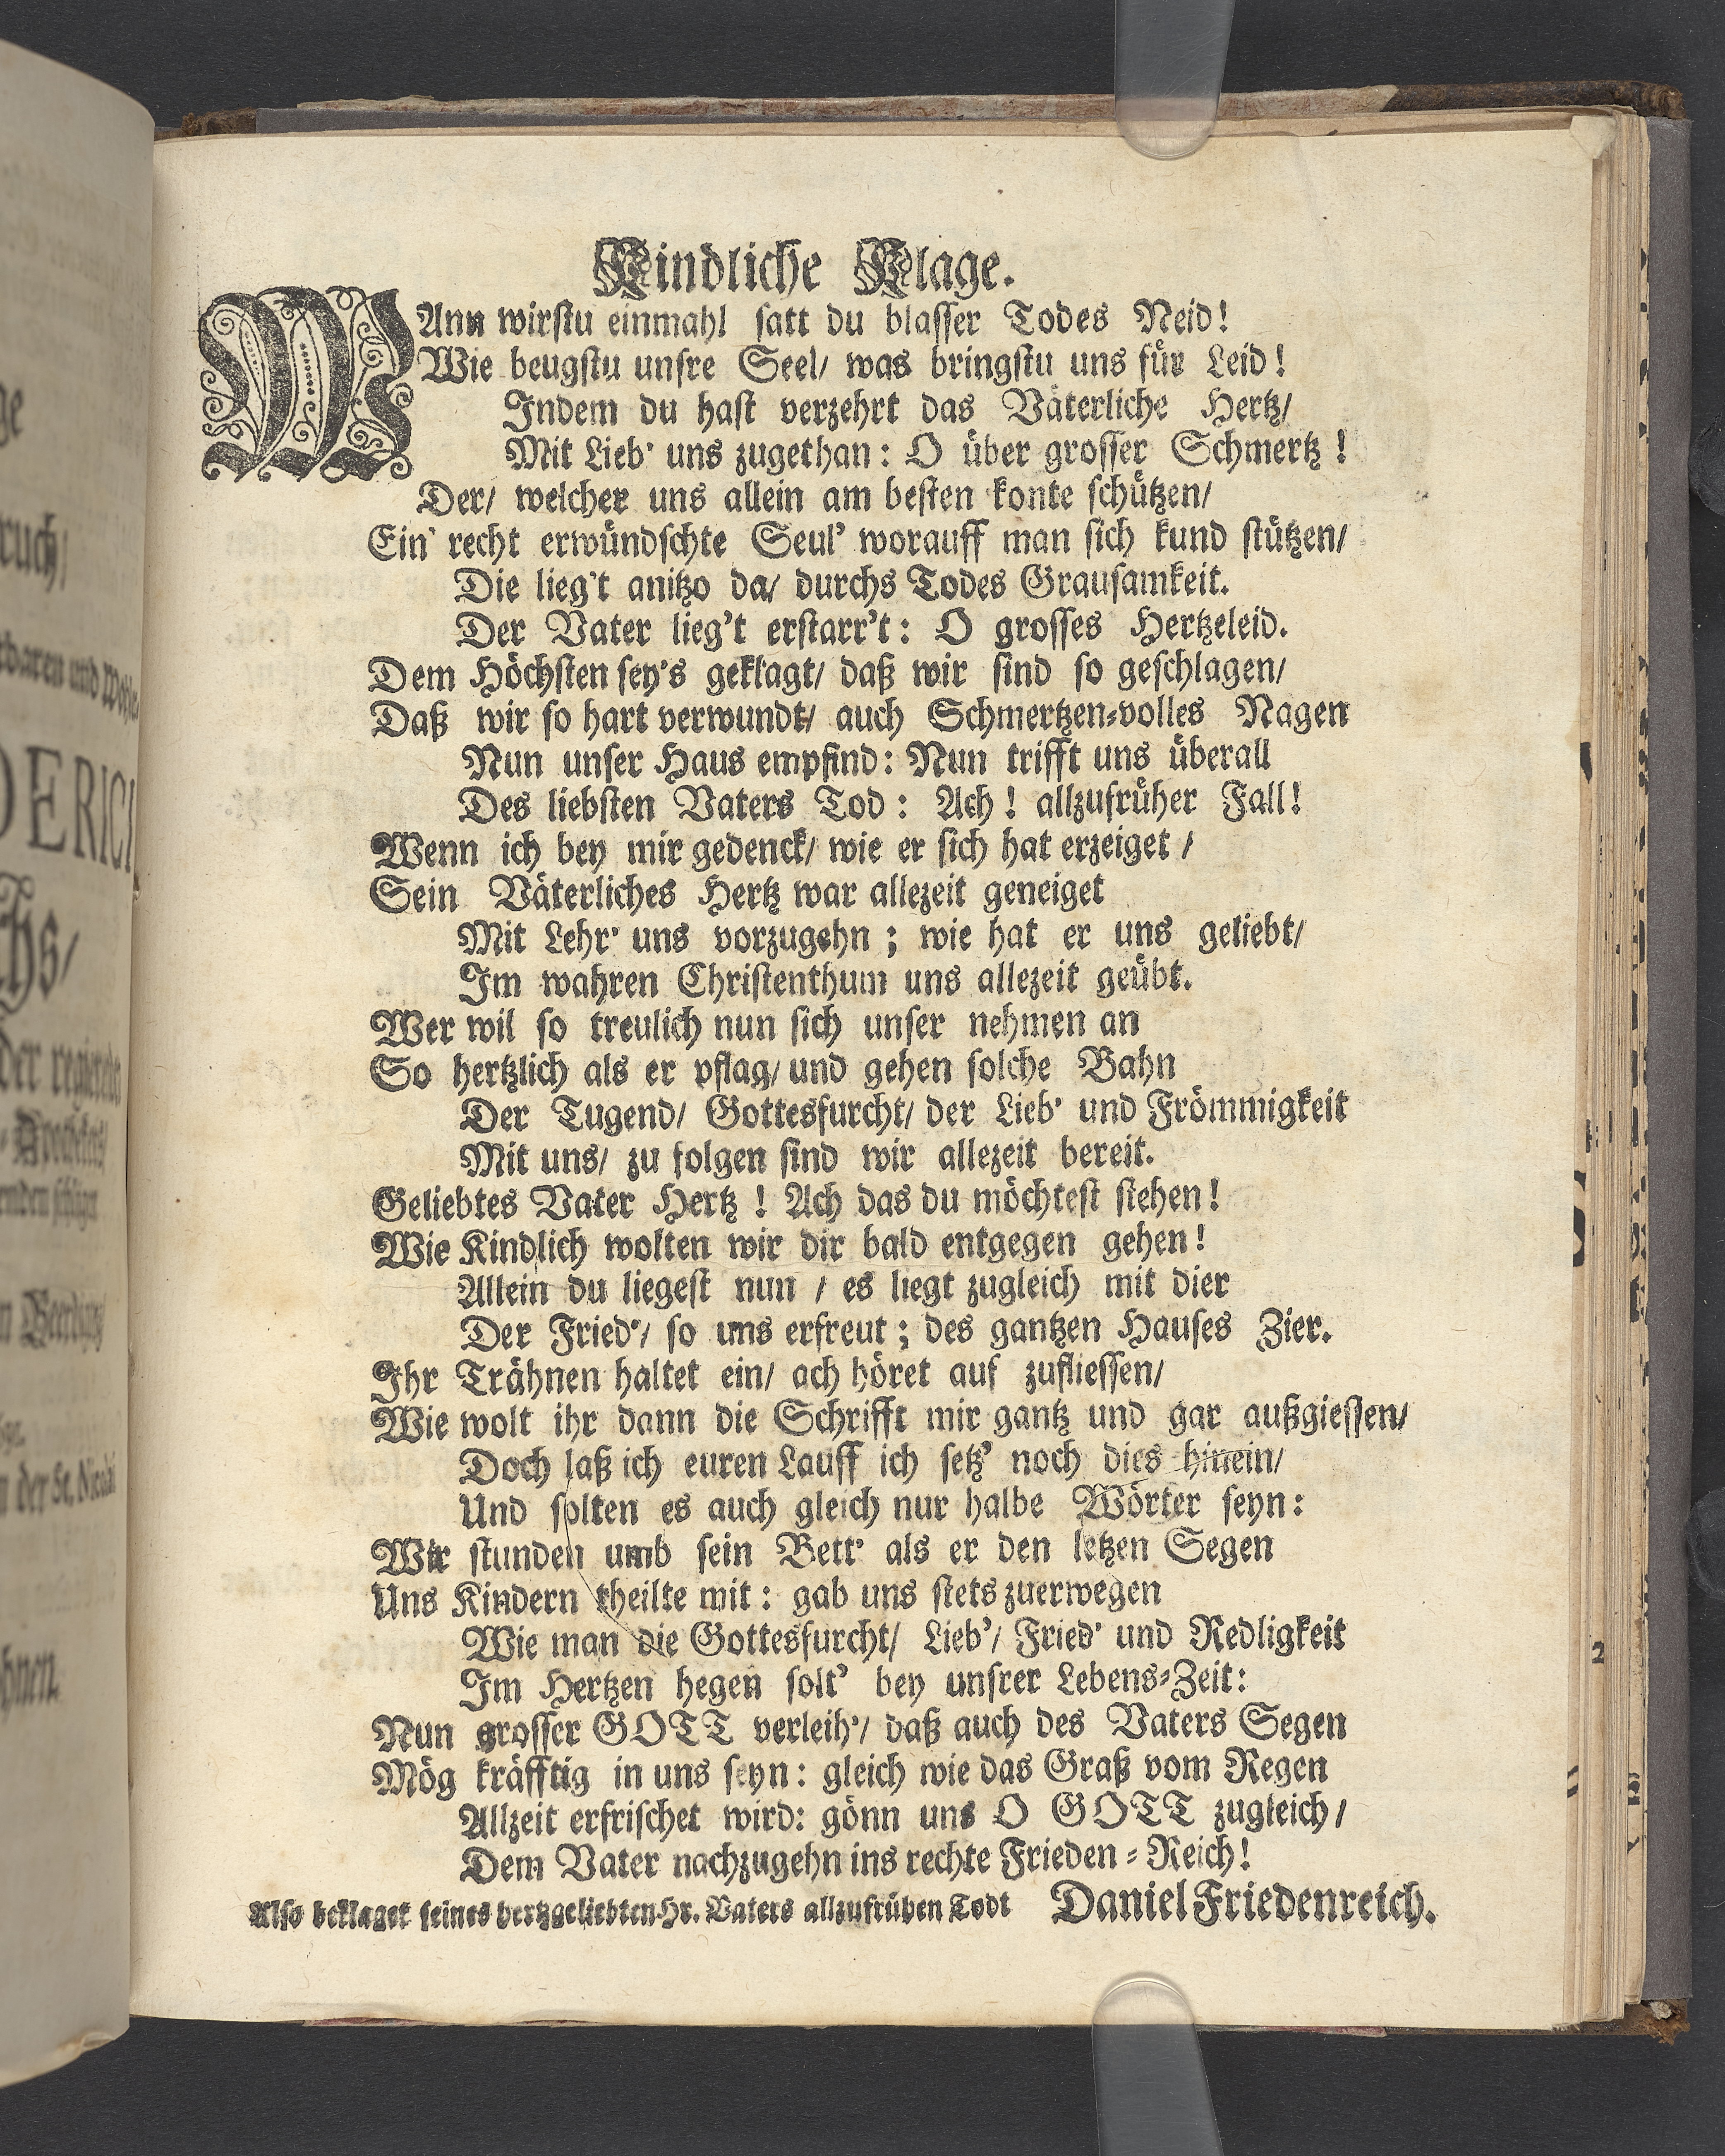 Kindliche Klage.
WAnn wirstu einmahl satt du blasser Todes Neid!
Wie beugstu unsre Seel/ was bringstu uns für Leid!
Indem du hast verzehrt das Väterliche Hertz/
Mit Lieb' uns zugethan: O über grosser Schmertz!
Der/ welcher uns allein am besten konte schützen/
Ein' recht erwündschte Seul' worauff man sich kund stützen/
Die lieg't anitzo da/ durchs Todes Grausamkeit.
Der Vater lieg't erstarr't: O grosses Hertzeleid.
Dem Höchsten sey's geklagt/ daß wir sind so geschlagen/
Daß wir so hart verwundt/ auch Schmertzen-volles Nagen
Nun unser Haus empfind: Nun trifft uns überall
Des liebsten Vaters Tod: Ach! allzufrüher Fall!
Wenn ich bey mir gedenck/ wie er sich hat erzeiget/
Sein Väterliches Hertz war allezeit geneiget
Mit Lehr' uns vorzugehn; wie hat er uns geliebt/
Im wahren Christenthum uns allezeit geübt.
Wer wil so treulich nun sich unser nehmen an
So hertzlich als er pflag/ und gehen solche Bahn
Der Tugend/ Gottesfurcht/ der Lieb' und Frömmigkeit
Mit uns/ zu folgen sind wir allezeit bereit.
Geliebtes Vater Hertz! Ach das du möchtest stehen!
Wie Kindlich wolten wir dir bald entgegen gehen!
Allein du liegest nun/ es liegt zugleich mit dier
Der Fried'/ so uns erfreut; des gantzen Hauses Zier.
Ihr Trähnen haltet ein/ ach höret auf zufliessen/
Wie wolt ihr dann die Schrifft mir gantz und gar außgiessen/
Doch laß ich euren Lauff ich setz' noch dies hinein/
Und solten es auch gleich nur halbe Wörter seyn:
Wir stunden umb sein Bett' als er den letzen Segen
Uns Kindern theilte mit: gab uns stets zuerwegen
Wie man die Gottesfurcht/ Lieb'/ Fried' und Redligkeit
Im Hertzen hegen solt' bey unsrer Lebens-Zeit:
Nun grosser GOTT verleih'/ daß auch des Vaters Segen
Mög kräfftig in uns seyn: gleich wie das Graß vom Regen
Allzeit erfrischet wird: gönn uns O GOTT zugleich/
Dem Vater nachzugehn ins rechte Frieden-Reich!
Also beklaget seines hertzgeliebten Hr. Vaters allzufrühen Todt Daniel Friedenreich.